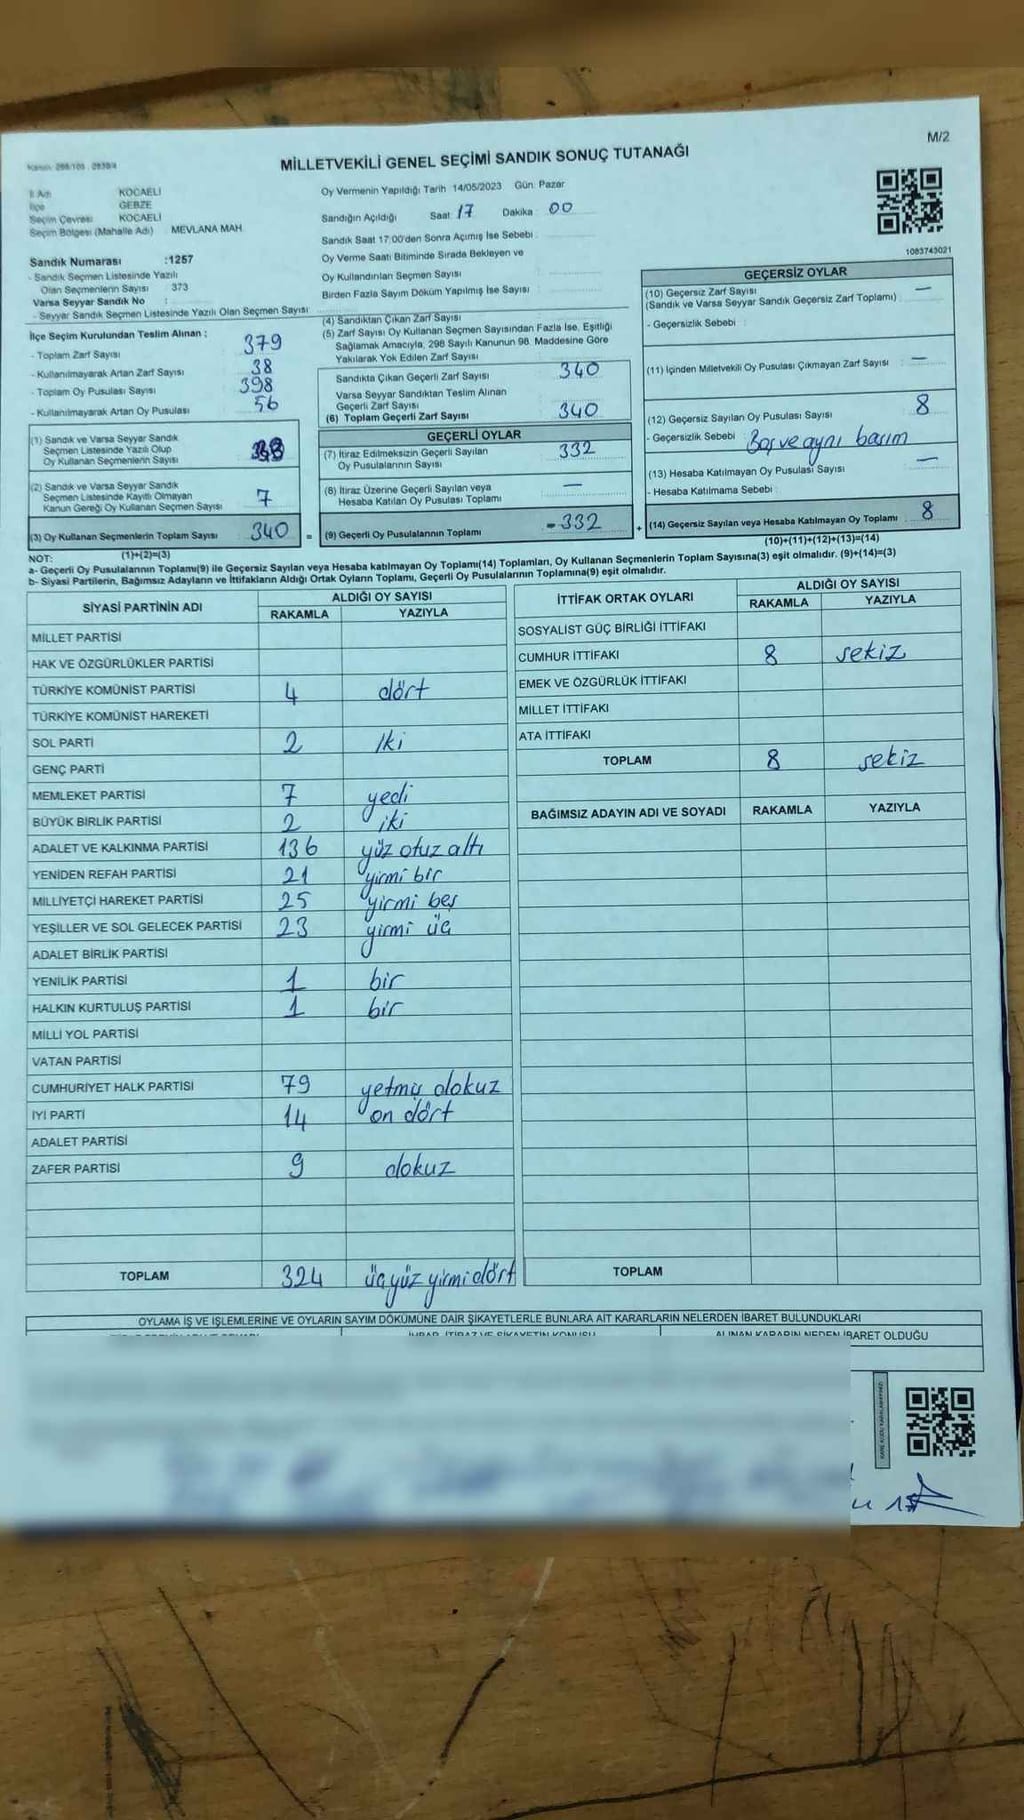 M/2
MİLLETVEKİLİ GENEL SEÇİMİ SANDIK SONUÇ TUTANAĞI
İl Adı KOCAELİ
İlçe GEBZE
Seçim Çevresi KOCAELİ
Seçim Bölgesi (Mahalle Adı) MEVLANA MAH.
Sandık Numarası :1257
- Sandık Seçmen Listesinde Yazılı
Olan Seçmenlerin Sayısı 373
Varsa Seyyar Sandık No :
- Seyyar Sandık Seçmen Listesinde Yazılı Olan Seçmen Sayısı
Oy Vermenin Yapıldığı Tarih 14/05/2023 Gün: Pazar
Sandığın Açıldığı Saat 17 Dakika 00
Sandık Saat 17:00'den Sonra Açılmış İse Sebebi :
Oy Verme Saati Bitiminde Sırada Bekleyen ve
Oy Kullandırılan Seçmen Sayısı :
Birden Fazla Sayım Döküm Yapılmış İse Sayısı :
1083743021
İlçe Seçim Kurulundan Teslim Alınan :
- Toplam Zarf Sayısı 379
- Kullanılmayarak Artan Zarf Sayısı 38
- Toplam Oy Pusulası Sayısı 398
- Kullanılmayarak Artan Oy Pusulası 56
(1) Sandık ve Varsa Seyyar Sandık
Seçmen Listesinde Yazılı Olup
Oy Kullanan Seçmenlerin Sayısı
(2) Sandık ve Varsa Seyyar Sandık
Seçmen Listesinde Kayıtlı Olmayan
Kanun Gereği Oy Kullanan Seçmen Sayısı 7
(3) Oy Kullanan Seçmenlerin Toplam Sayısı 340 =
(1)+(2)=(3)
(4) Sandıktan Çıkan Zarf Sayısı
(5) Zarf Sayısı Oy Kullanan Seçmen Sayısından Fazla İse, Eşitliği
Sağlamak Amacıyla, 298 Sayılı Kanunun 98. Maddesine Göre
Yakılarak Yok Edilen Zarf Sayısı
Sandıkta Çıkan Geçerli Zarf Sayısı 340
Varsa Seyyar Sandıktan Teslim Alınan
Geçerli Zarf Sayısı
(6) Toplam Geçerli Zarf Sayısı 340
GEÇERLİ OYLAR
(7) İtiraz Edilmeksizin Geçerli Sayılan
Oy Pusulalarının Sayısı 332
(8) İtiraz Üzerine Geçerli Sayılan veya
Hesaba Katılan Oy Pusulası Toplamı —
(9) Geçerli Oy Pusulalarının Toplamı -332 +
GEÇERSİZ OYLAR
(10) Geçersiz Zarf Sayısı —
(Sandık ve Varsa Seyyar Sandık Geçersiz Zarf Toplamı)
- Geçersizlik Sebebi :
(11) İçinden Milletvekili Oy Pusulası Çıkmayan Zarf Sayısı —
(12) Geçersiz Sayılan Oy Pusulası Sayısı 8
- Geçersizlik Sebebi Boş ve aynı basım
(13) Hesaba Katılmayan Oy Pusulası Sayısı —
- Hesaba Katılmama Sebebi
(14) Geçersiz Sayılan veya Hesaba Katılmayan Oy Toplamı 8
(10)+(11)+(12)+(13)=(14)
NOT:
a- Geçerli Oy Pusulalarının Toplamı(9) ile Geçersiz Sayılan veya Hesaba katılmayan Oy Toplamı(14) Toplamları, Oy Kullanan Seçmenlerin Toplam Sayısına(3) eşit olmalıdır. (9)+(14)=(3)
b- Siyasi Partilerin, Bağımsız Adayların ve İttifakların Aldığı Ortak Oyların Toplamı, Geçerli Oy Pusulalarının Toplamına(9) eşit olmalıdır.
SİYASİ PARTİNİN ADI ALDIĞI OY SAYISI
RAKAMLA YAZIYLA
MİLLET PARTİSİ
HAK VE ÖZGÜRLÜKLER PARTİSİ
TÜRKİYE KOMÜNİST PARTİSİ 4 dört
TÜRKİYE KOMÜNİST HAREKETİ
SOL PARTİ 2 İki
GENÇ PARTİ
MEMLEKET PARTİSİ 7 yedi
BÜYÜK BİRLİK PARTİSİ 2 iki
ADALET VE KALKINMA PARTİSİ 136 yüz otuz altı
YENİDEN REFAH PARTİSİ 21 yirmi bir
MİLLİYETÇİ HAREKET PARTİSİ 25 yirmi beş
YEŞİLLER VE SOL GELECEK PARTİSİ 23 yirmi üç
ADALET BİRLİK PARTİSİ
YENİLİK PARTİSİ 1 bir
HALKIN KURTULUŞ PARTİSİ 1 bir
MİLLİ YOL PARTİSİ
VATAN PARTİSİ
CUMHURİYET HALK PARTİSİ 79 yetmiş dokuz
İYİ PARTİ 14 on dört
ADALET PARTİSİ
ZAFER PARTİSİ 9 dokuz
TOPLAM 324 üçyüz yirmi dört
İTTİFAK ORTAK OYLARI ALDIĞI OY SAYISI
RAKAMLA YAZIYLA
SOSYALİST GÜÇ BİRLİĞİ İTTİFAKI
CUMHUR İTTİFAKI 8 sekiz
EMEK VE ÖZGÜRLÜK İTTİFAKI
MİLLET İTTİFAKI
ATA İTTİFAKI
TOPLAM 8 sekiz
BAĞIMSIZ ADAYIN ADI VE SOYADI RAKAMLA YAZIYLA
TOPLAM
OYLAMA İŞ VE İŞLEMLERİNE VE OYLARIN SAYIM DÖKÜMÜNE DAİR ŞİKAYETLERLE BUNLARA AİT KARARLARIN NELERDEN İBARET BULUNDUKLARI
İHBAR, İTİRAZ VE ŞİKAYETİN KONUSU ALINAN KARARIN NEDEN İBARET OLDUĞU